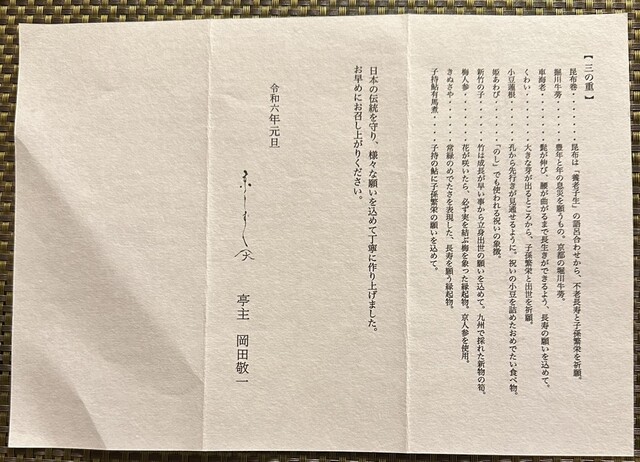 【 三の重 】
昆布巻・・・・・・昆布は「養老子生」の語呂合わせから、不老長寿と子孫繁栄を祈願。
堀川牛蒡・・・・・豊年と年の息災を願うもの。京都の堀川牛蒡。
車海老・・・・・・髭が伸び、腰が曲がるまで長生きができるよう、長寿の願いを込めて。
くわい・・・・・・大きな芽が出るところから、子孫繁栄と出世を祈願。
小豆蓮根・・・・・孔から先行きが見通せるように。祝いの小豆を詰めたおめでたい食べ物。
姫あわび・・・・・「のし」でも使われる祝いの象徴。
新竹の子・・・・・竹は成長が早い事から立身出世の願いを込めて。九州で採れた新物の筍。
梅人参・・・・・・花が咲いたら、必ず実を結ぶ梅を象った縁起物。京人参を使用。
きぬさや・・・・・常緑のめでたさを表現した、長寿を願う縁起物。
子持鮎有馬煮・・・・子持の鮎に子孫繁栄の願いを込めて。
日本の伝統を守り、様々な願いを込めて丁寧に作り上げました。
お早めにお召し上がりください。
令和六年元旦
亭主 岡田敬一